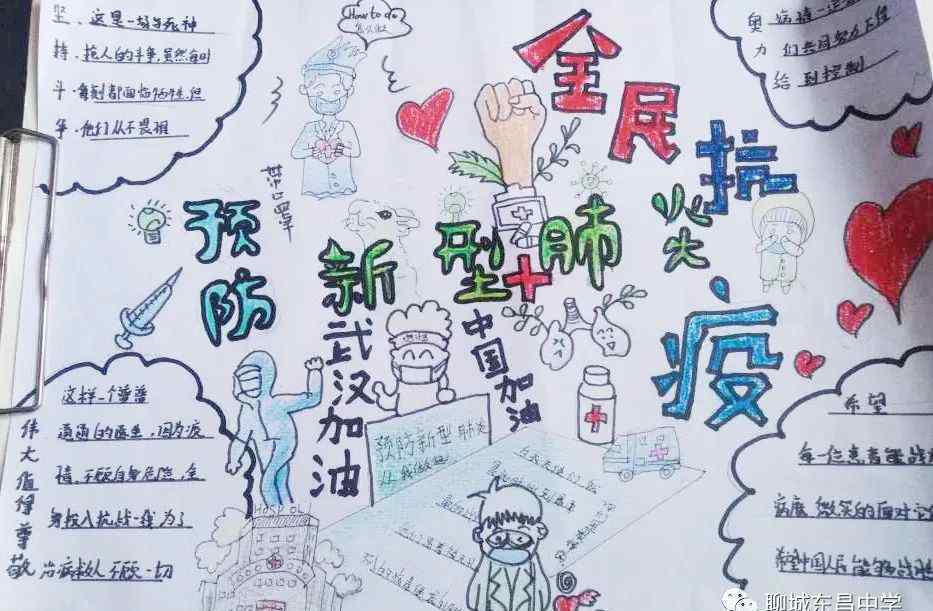 坚 这是一场与死神
持 抢人的斗争,虽然每时
斗 每刻都面临牺牲,但
争 他们从不畏惧
How to do
怎么做
奥
力 们共同努力下得
给 到控制
全民抗疫
预防新型肺炎
戴口罩
武汉加油
中国加油
预防新型肺炎
让我做起
这样一个普普
通通的医生,因为疫
情,不顾自身危险,全
身投入抗战一线,为了
治病救人不顾一切
伟大值得尊敬
HOSPITOL
希望
每一位患者能战
病魔,微笑的面对
希望中国人民能够战胜
聊城东昌中学